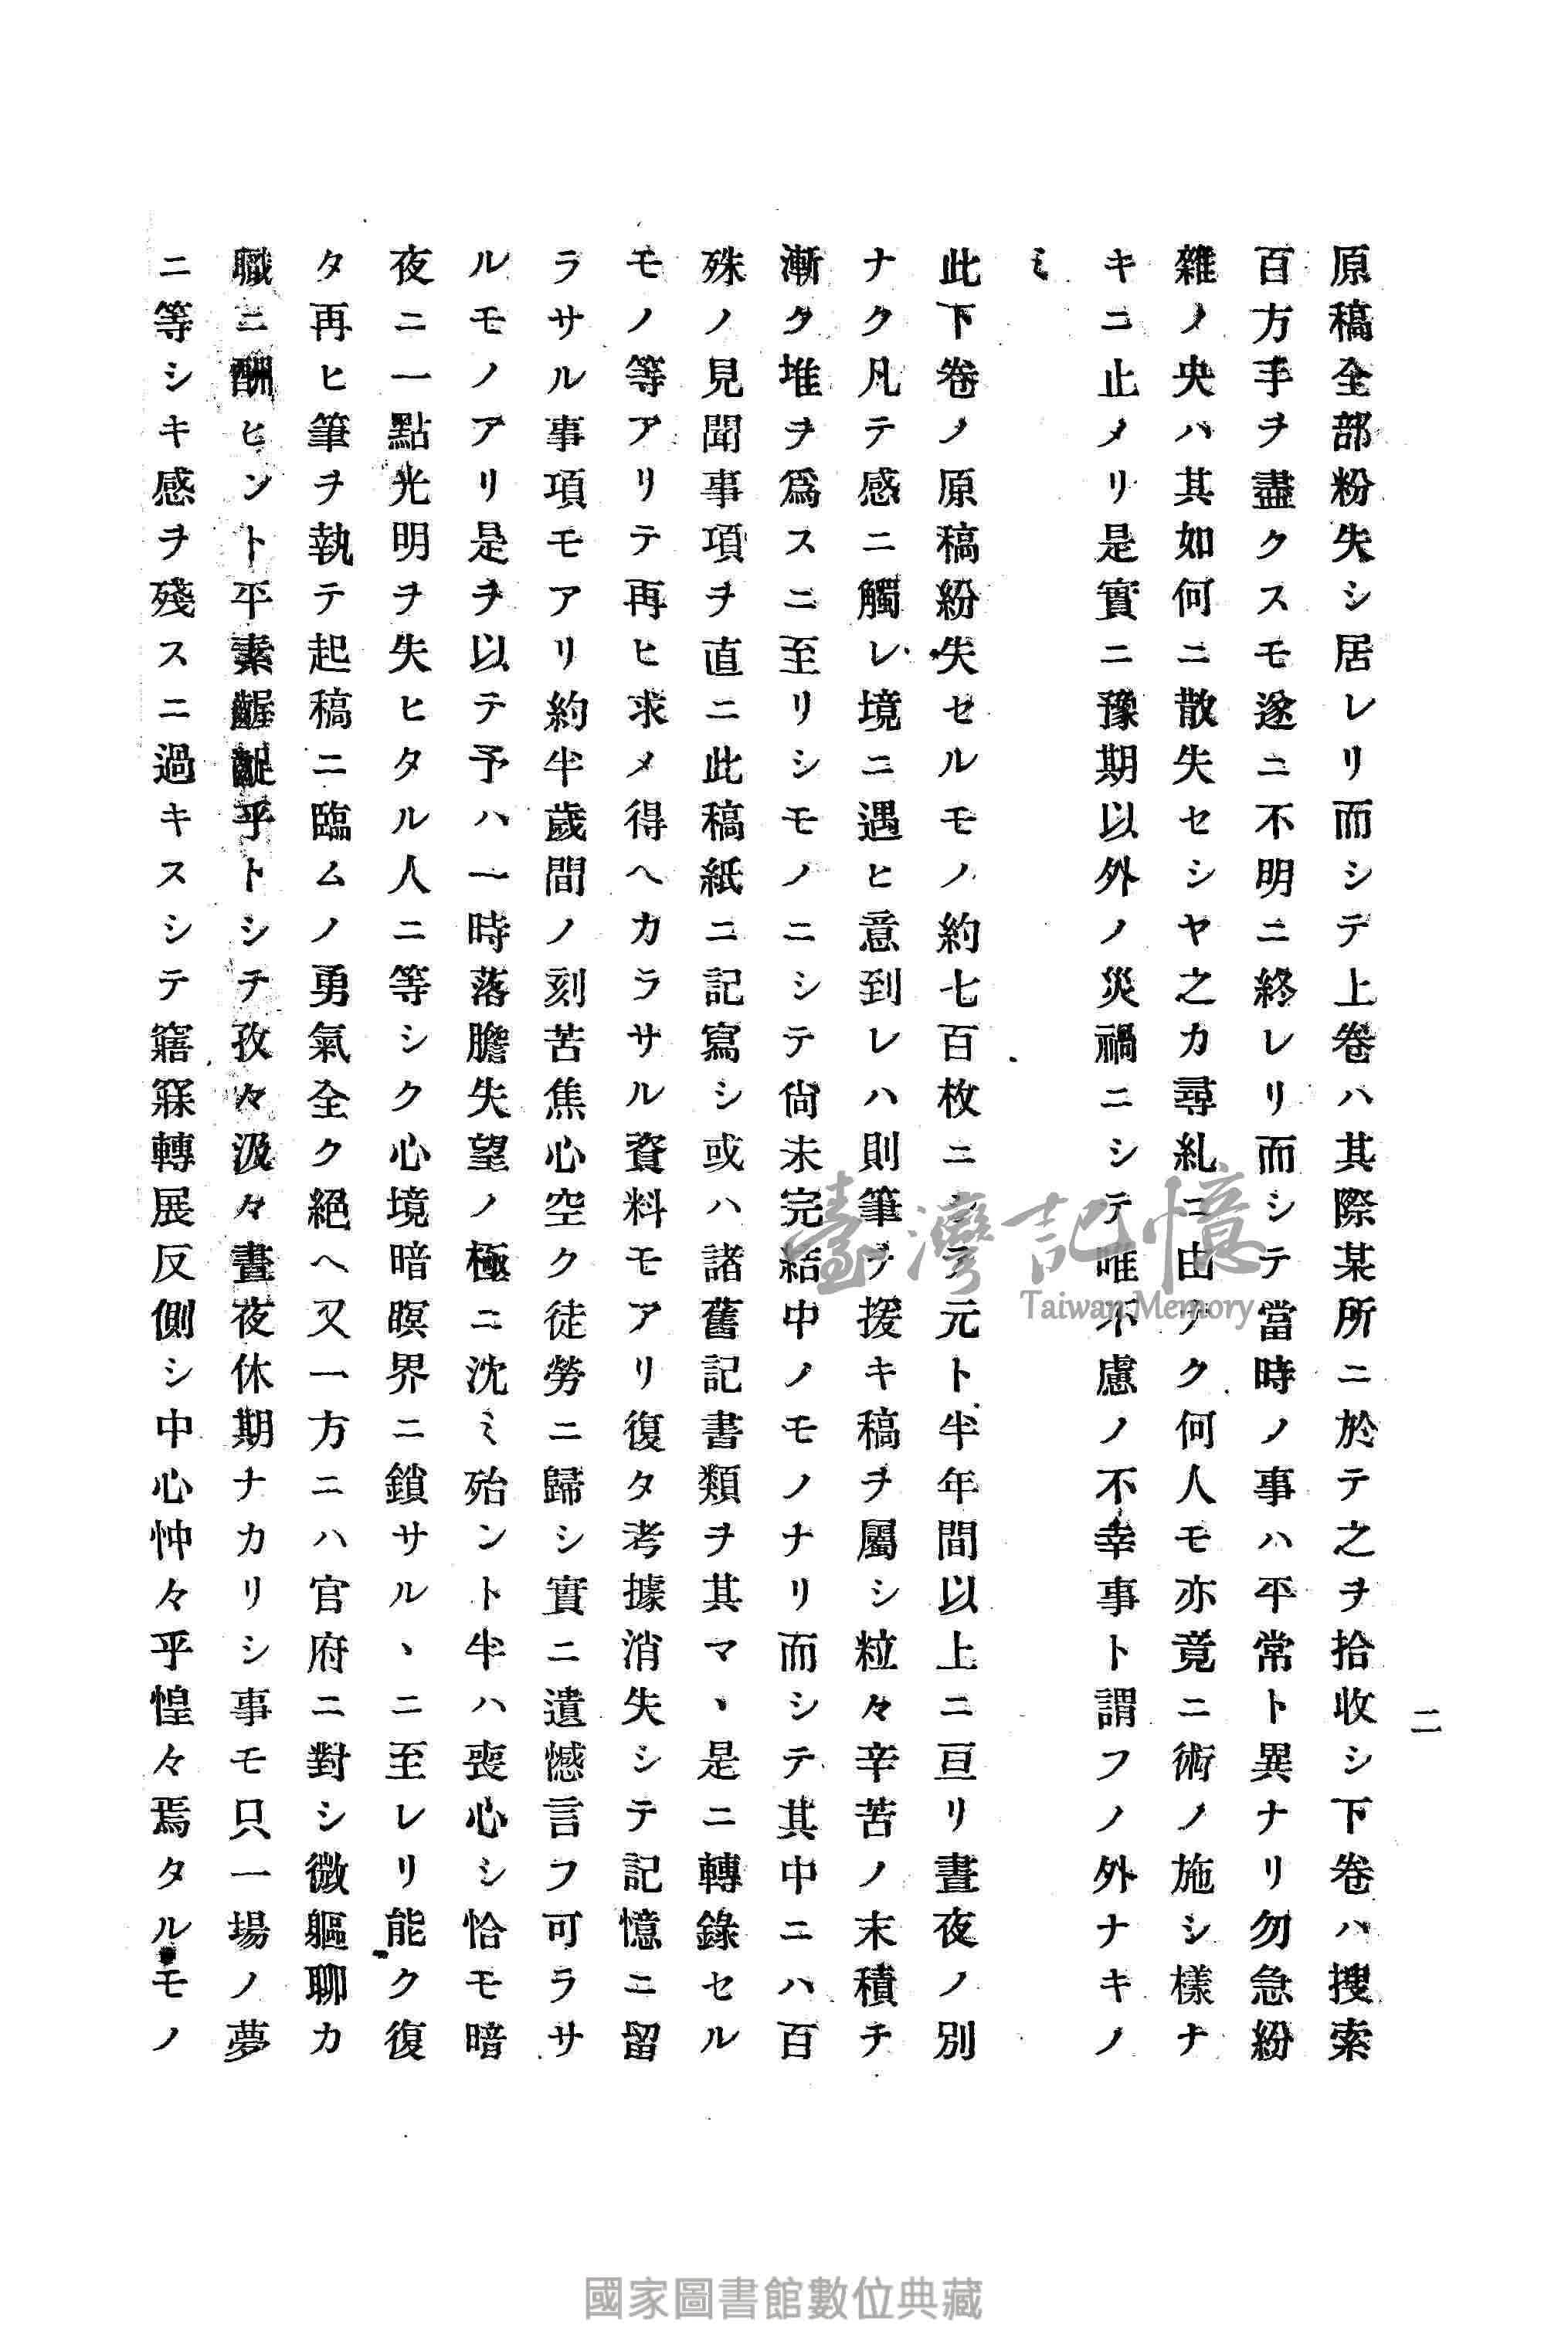 二
原稿全部粉失シ居レリ而シテ上卷ハ其際某所ニ於テ之ヲ拾收シ下卷ハ搜索
百方手ヲ盡クスモ遂ニ不明ニ終レリ而シテ當時ノ事ハ平常ト異ナリ勿急紛
雜ノ央ハ其如何ニ散失セシヤ之カ尋糺ニ由ナク何人モ亦竟ニ術ノ施シ樣ナ
キニ止メリ是實ニ豫期以外ノ災禍ニシテ唯不慮ノ不幸事ト謂フノ外ナキノ
ミ
此下卷ノ原稿紛失セルモノ約七百枚ニシテ元ト半年間以上ニ亘リ晝夜ノ別
ナク凡テ感ニ觸レ境ニ遇ヒ意到レハ則筆ヲ援キ稿ヲ屬シ粒々辛苦ノ末積テ
漸ク堆ヲ爲スニ至リシモノニシテ尙未完結中ノモノナリ而シテ其中ニハ百
殊ノ見聞事項ヲ直ニ此稿紙ニ記寫シ或ハ諸舊記書類ヲ其マヽ是ニ轉錄セル
モノ等アリテ再ヒ求メ得ヘカラサル資料モアリ復タ考據消失シテ記憶ニ留
ラサル事項モアリ約半歲間ノ刻苦焦心空ク徒勞ニ歸シ實ニ遺憾言フ可ラサ
ルモノアリ是ヲ以テ予ハ一時落膽失望ノ極ニ沈ミ殆ント半ハ喪心シ恰モ暗
夜ニ一點光明ヲ失ヒタル人ニ等シク心境暗暝界ニ鎖サルヽニ至レリ能ク復
タ再ヒ筆ヲ執テ起稿ニ臨ムノ勇氣全ク絕ヘ又一方ニハ官府ニ對シ微軀聊カ
職ニ酬ヒント平素齷齪乎トシテ孜々汲々晝夜休期ナカリシ事モ只一場ノ夢
ニ等シキ感ヲ殘スニ過キスシテ寤寐轉展反側シ中心忡々乎惶々焉タルモノ
臺灣記憶
Taiwan Memory
國家圖書館數位典藏